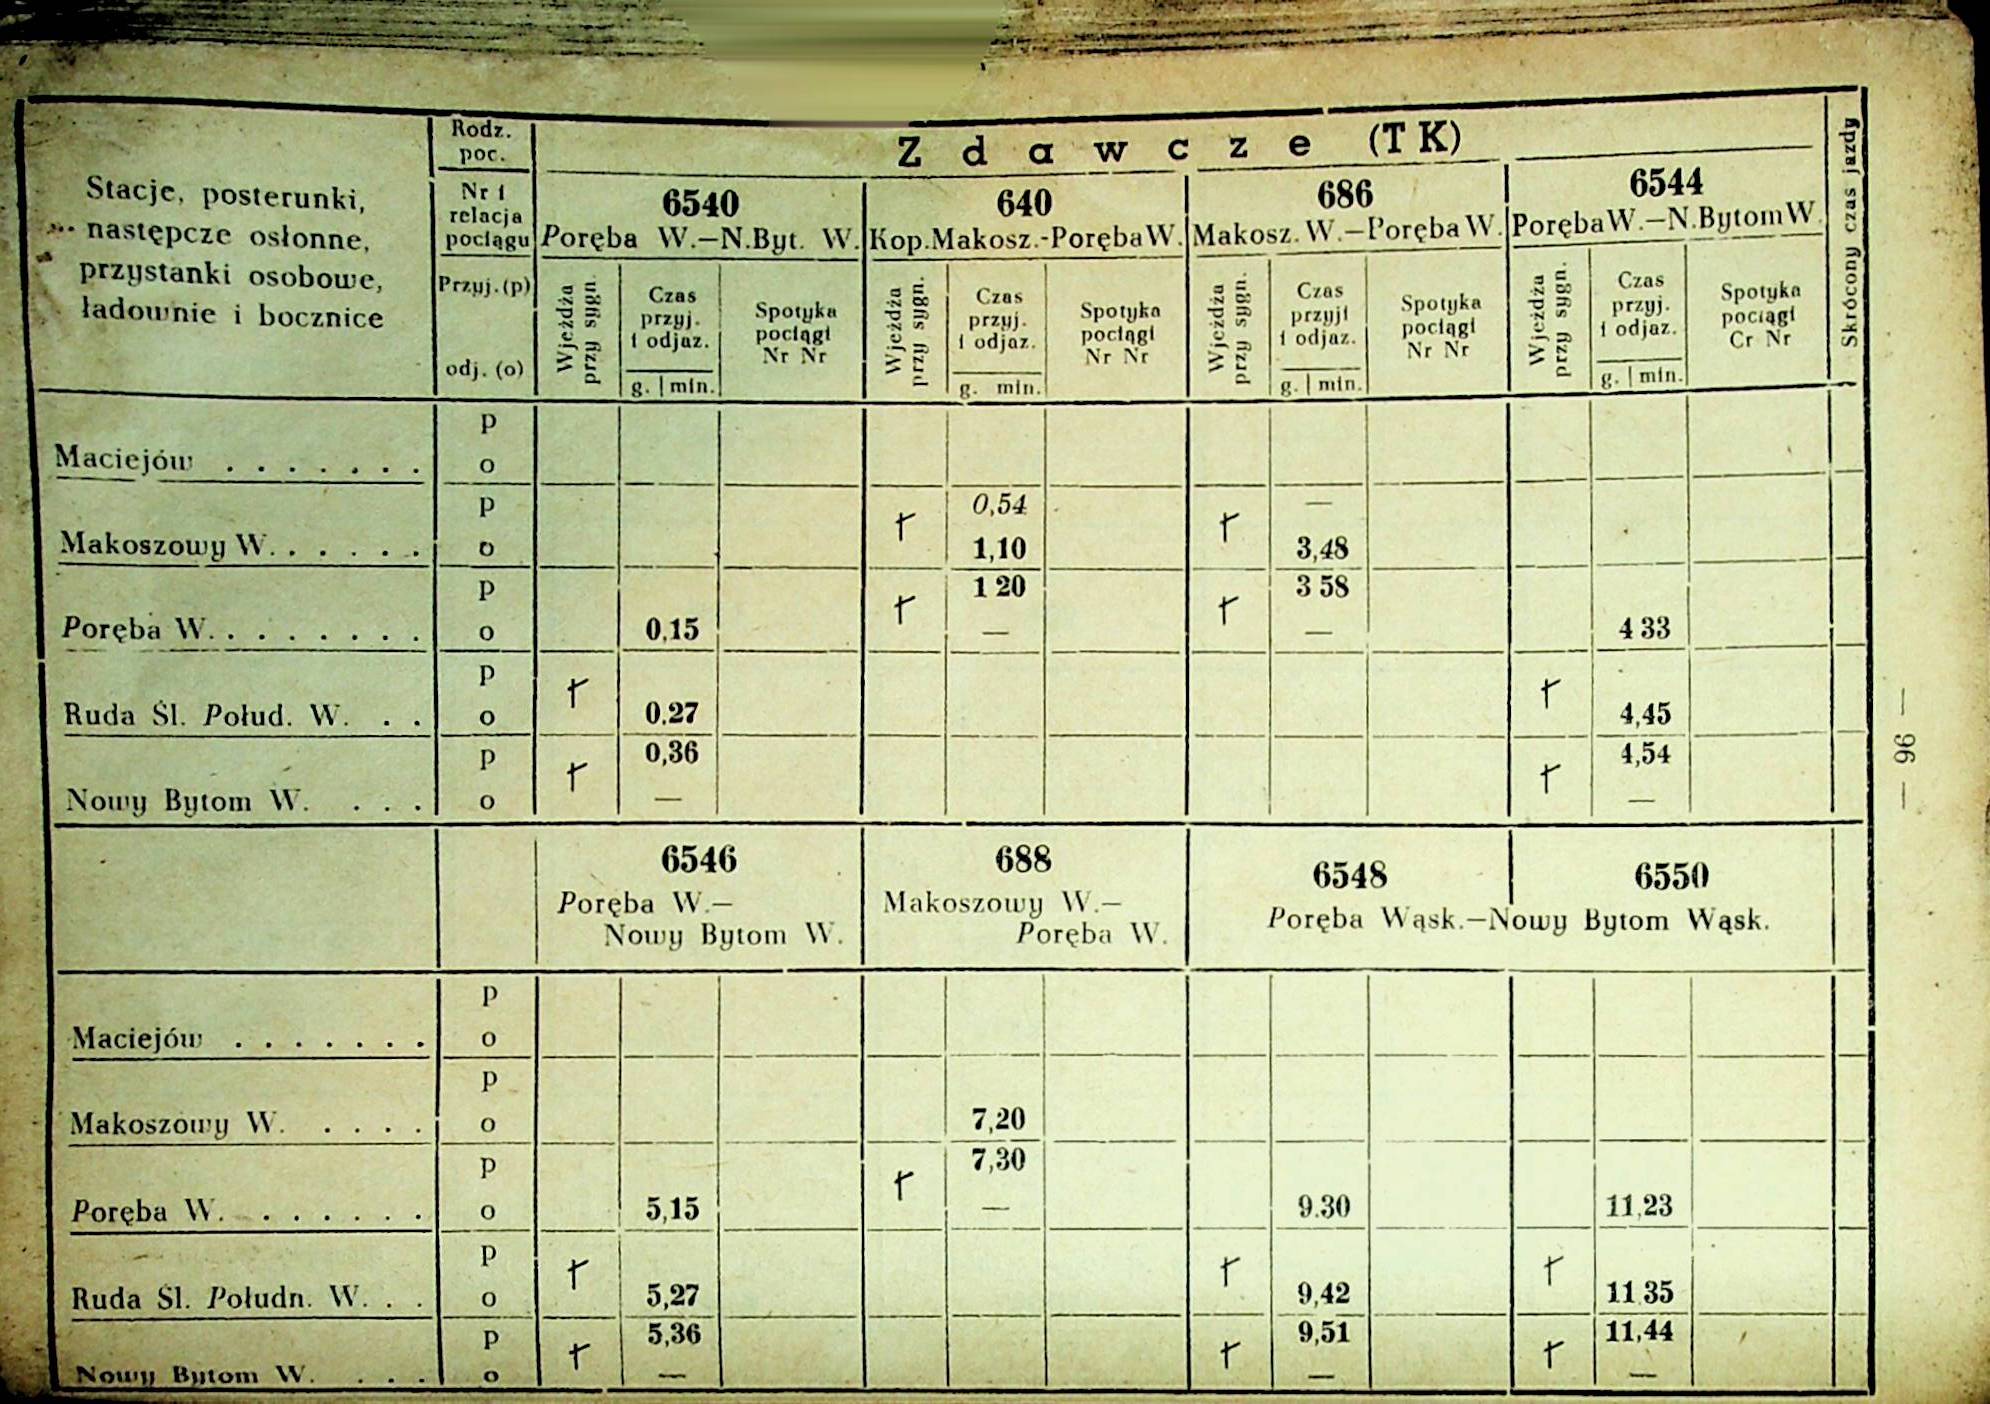 Stacje, posterunki,
następcze osłonne,
przystanki osobowe,
ładownie i bocznice
Rodz.
poc.
Nr i
relacja
pociągu
Przyj.(p)
odj. (o)
Zdawcze (TK)
6540 640 686 6544
Poręba W.—N.Byt. W. Kop.Makosz.-Poręba W. Makosz. W.—Poręba W. Poręba W.—N.Bytom W.
Wjeżdża
przy sygn.
Czas
przyj.
i odjaz.
g. | min.
Spotyka
pociągi
Nr Nr
Wjeżdża
przy sygn.
Czas
przyj.
i odjaz.
g. min.
Spotyka
pociągi
Nr Nr
Wjeżdża
przy sygn.
Czas
przyji
i odjaz.
g. | min.
Spotyka
pociągi
Nr Nr
Wjeżdża
przy sygn.
Czas
przyj.
i odjaz.
g. | min.
Spotyka
pociągi
Cr Nr
Skrócony czas jazdy
p
Maciejów . . . . . . . o
p 0,54 —
Makoszowy W. . . . . . o 1,10 3,48
p 1 20 3 58
Poręba W. . . . . . . . o 0,15 — — 4 33
p
Ruda Śl. Połud. W. . . o 0.27 4,45
p 0,36 4,54
Nowy Bytom W. . . . o — —
6546 688 6548 6550
Poręba W.—
Nowy Bytom W.
Makoszowy W.—
Poręba W.
Poręba Wąsk.—Nowy Bytom Wąsk.
p
Maciejów . . . . . . . o
p
Makoszowy W. . . . . o 7,20
p 7,30
Poręba W. . . . . . . o 5,15 — 9.30 11,23
p
Ruda Śl. Połudn. W. . . o 5,27 9,42 11 35
p 5,36 9,51 11,44
Nowy Bytom W. . . . o — — —
— 96 —